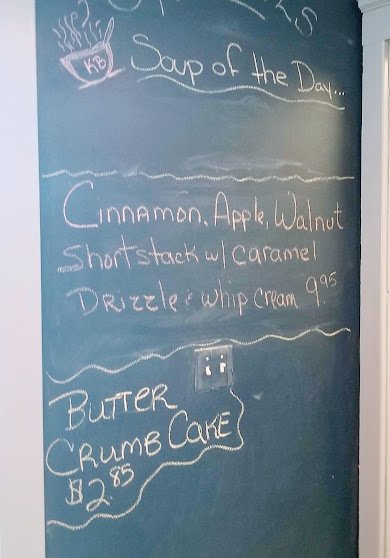 KB
Soup of the Day...
Cinnamon, Apple, Walnut
Shortstack w/ Caramel
Drizzle & whip cream 9.95
Butter
Crumb Cake
$2.85